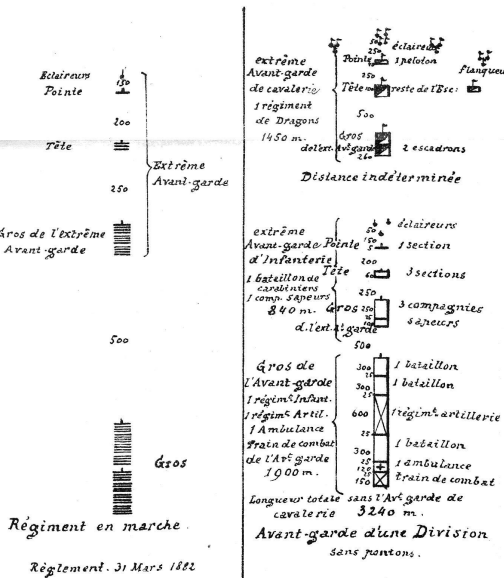 Eclaireurs
150
Pointe
200
Tête
250
Extrême
Avant-garde
Gros de l'Extrême
Avant-garde
500
Gros
Régiment en marche.
Règlement. 31 Mars 1882
extrême
Avant-garde
de cavalerie
1 régiment
de Dragons
1450 m.
50
éclaireurs
250
Pointe
1 peloton
flanqueu
250
Tête
reste de l'Esc:
500
Gros
de l'ext. Avt garde
260
2 escadrons
Distance indéterminée
extrême
Avant-garde
d'Infanterie
1 bataillon de
carabiniers
1 comp. sapeurs
840 m.
éclaireurs
50
150
Pointe
5
1 section
200
Tête
60
3 sections
250
Gros
250
3 compagnies
25
sapeurs
d.l'ext. Avt garde
500
Gros de
l'Avant-garde
1 régimt Infant.
1 régimt Artil.
1 Ambulance
Train de combat
de l'Avt garde
1900 m.
300
1 bataillon
25
300
1 bataillon
25
600
1 régimt artillerie
25
300
1 bataillon
25
120
1 ambulance
25
150
train de combat
Longueur totale sans l'Avt garde de
cavalerie 3240 m.
Avant-garde d'une Division
sans pontons.